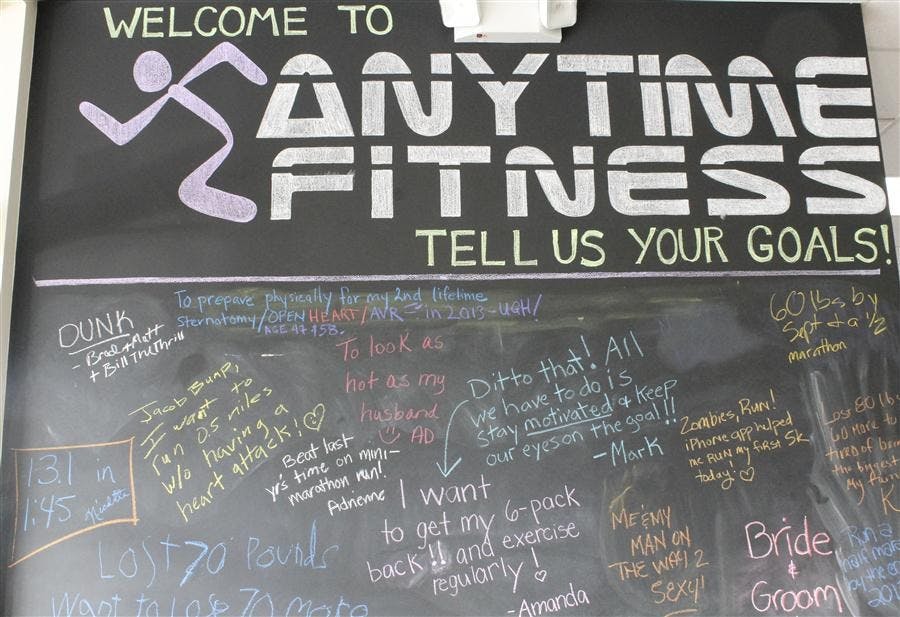 WELCOME TO
ANYTIME
FITNESS
TELL US YOUR GOALS!
DUNK
- Brad + Matt
+ Bill The Thrill
To prepare physically for my 2nd lifetime
sternotomy/OPEN HEART/AVR in 2013-UGH/
AGE 47 & 58.
60 lbs by
Sept & a 1/2
marathon
Jacob Bump,
I want to
run 0.5 miles
w/o having a
heart attack!
To look as
hot as my
husband
AD
Ditto that! All
we have to do is
stay motivated & keep
our eyes on the goal!!
-Mark
Zombies, Run!
iPhone app helped
me RUN my first 5K
today!
Lost 80 lbs
60 more to
tired of being
the biggest
My Aunt
13.1 in
1:45
Beat last
yrs time on mini-
marathon run!
Adrienne
I want
to get my 6-pack
back!! and exercise
regularly!
-Amanda
ME & MY
MAN ON
THE WAY 2
SEXY!
Bride
&
Groom
Run a
half mara
by the
201
Lost 70 Pounds
Want to lose 70 more